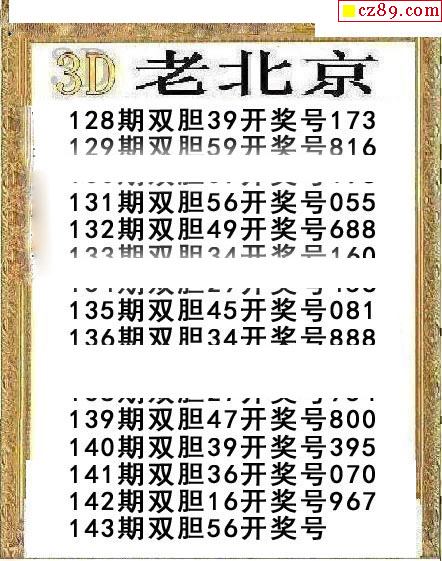 cz89.com
3D 老北京
128期双胆39开奖号173
129期双胆59开奖号816
131期双胆56开奖号055
132期双胆49开奖号688
133期双胆34开奖号160
135期双胆45开奖号081
136期双胆34开奖号888
139期双胆47开奖号800
140期双胆39开奖号395
141期双胆36开奖号070
142期双胆16开奖号967
143期双胆56开奖号